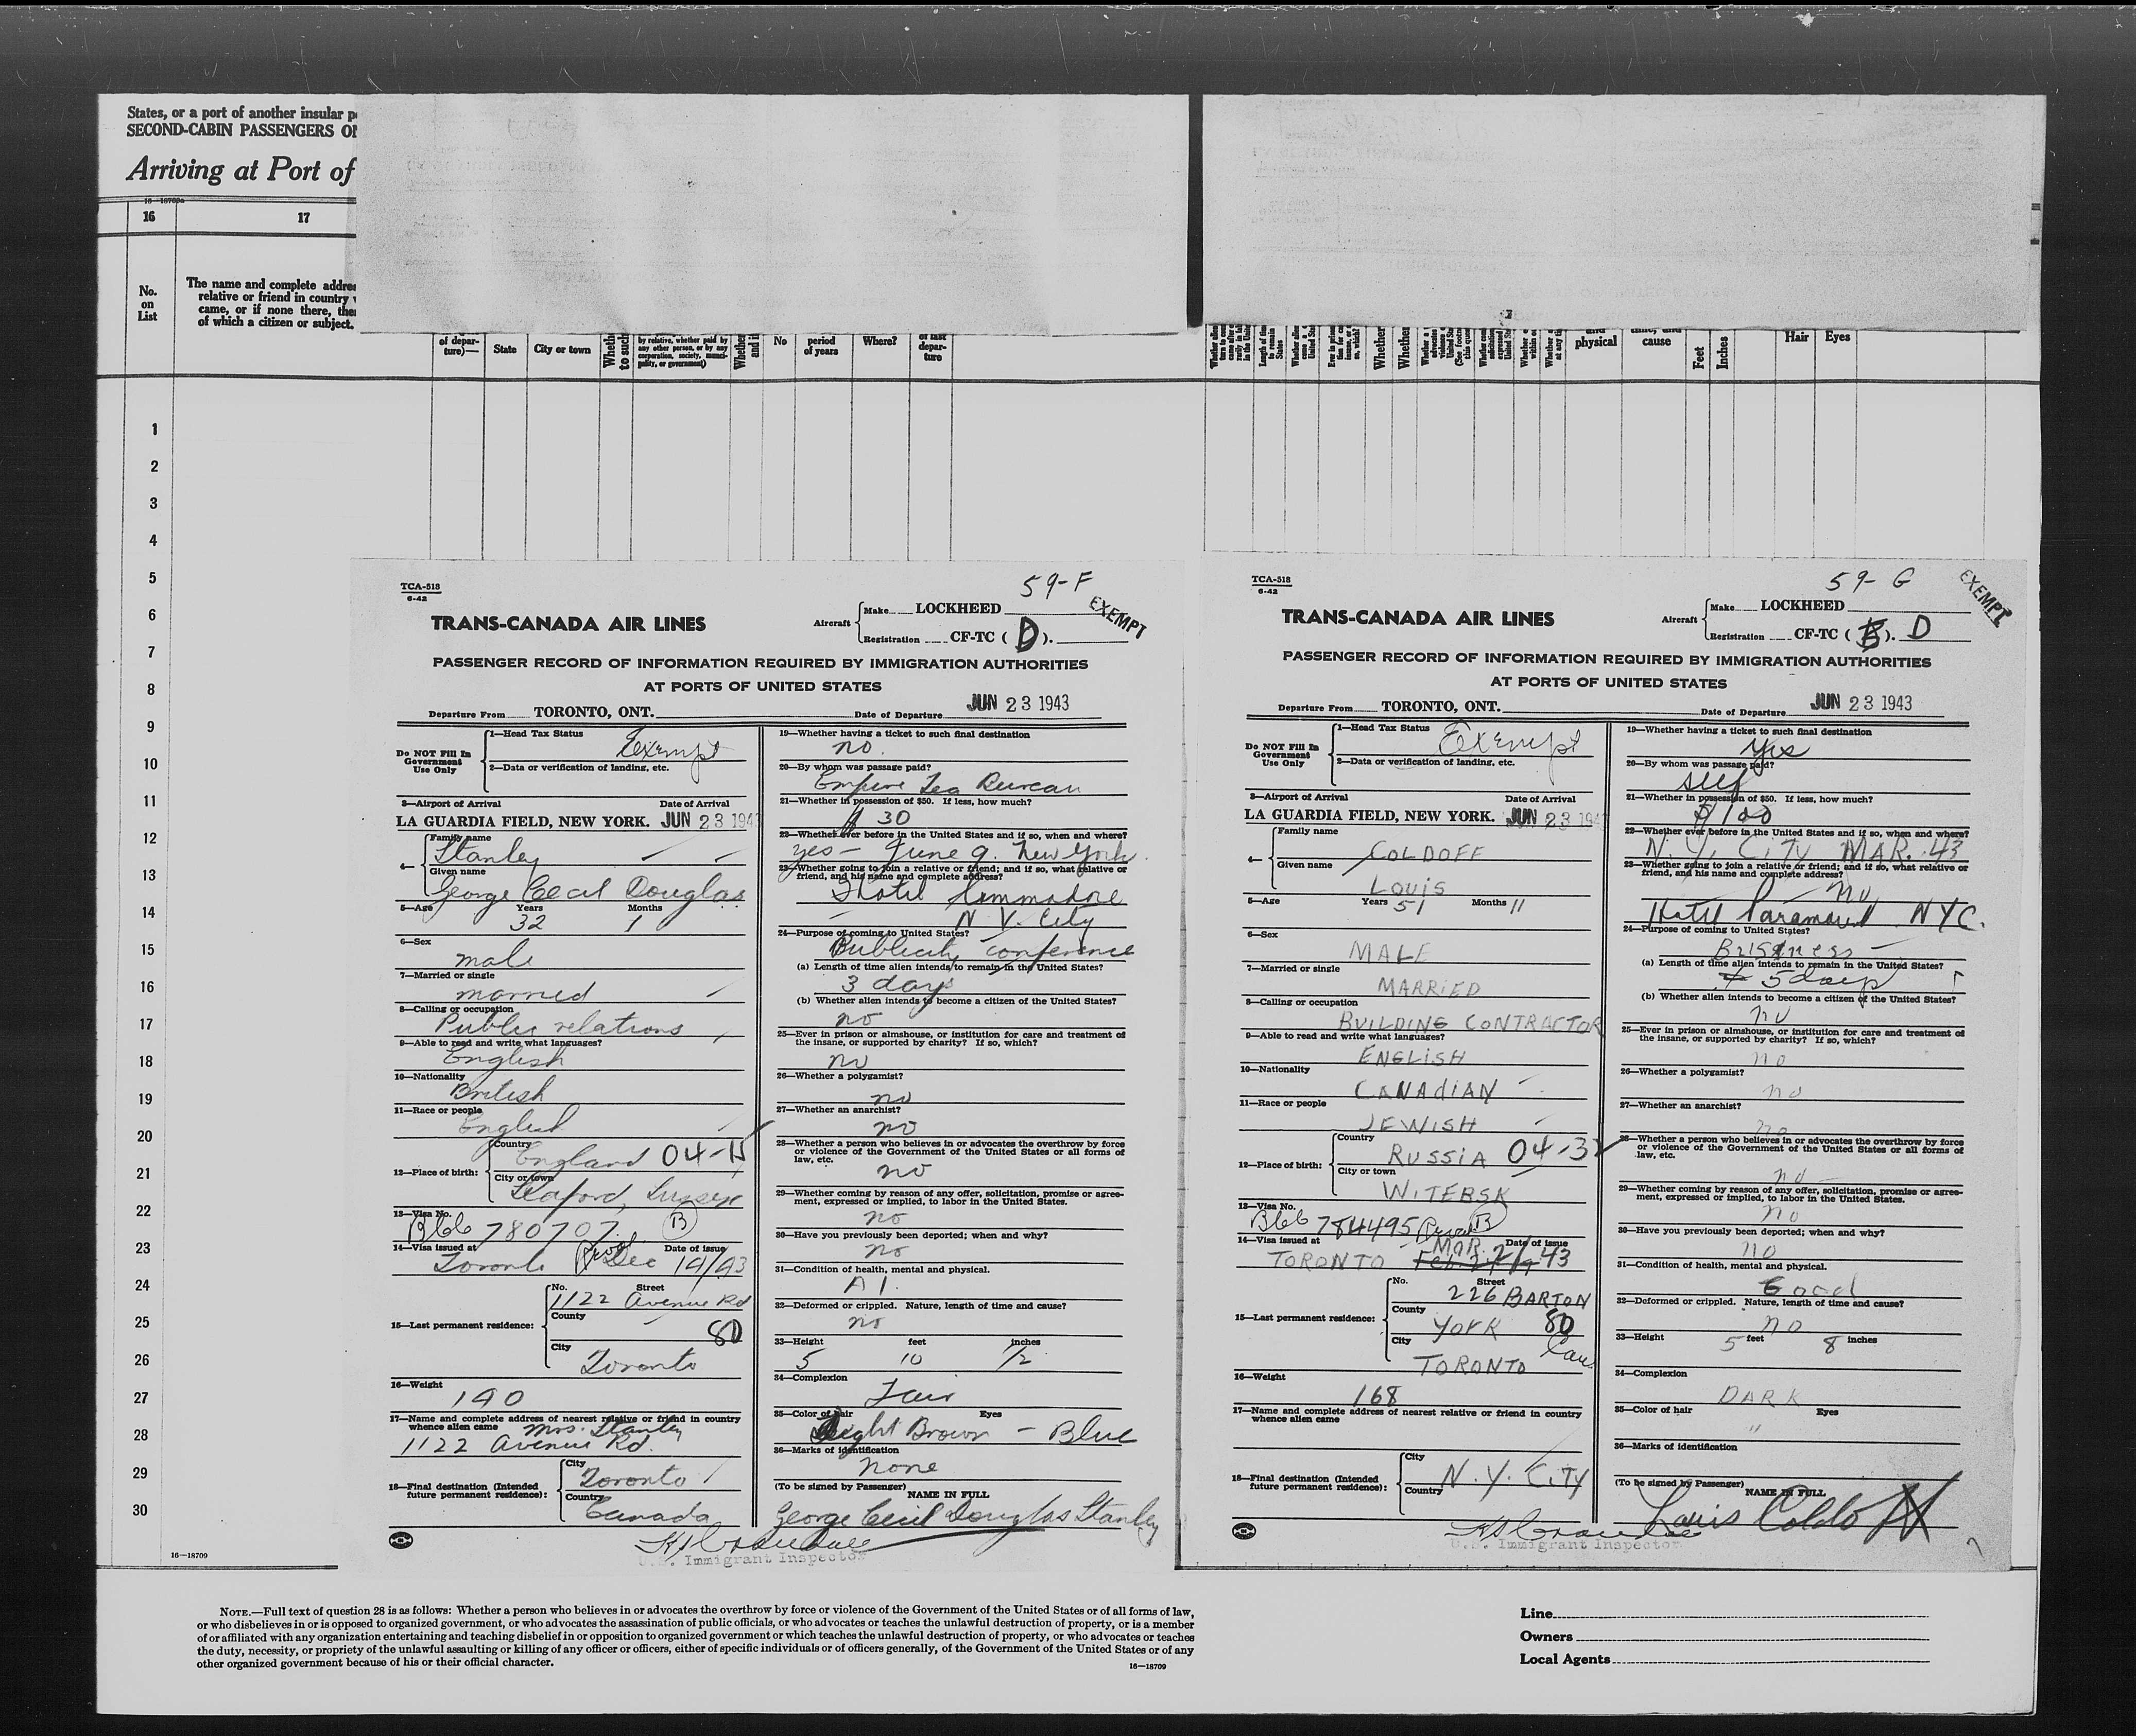 States, or a port of another insular
SECOND-CABIN PASSENGERS
Arriving at Port of
16—18709a
16 17
No. on List
The name and complete
relative or friend in country
came, or if none there,
of which a citizen or subject.
of depar-
ture)—
State
City or town
by relative, whether paid by
any other person, or by any
corporation, society, munici-
pality, or government)
No
period
of years
Where?
of last
depar-
ture
Whether
Whether
and
physical
cause
Feet
Inches
Hair
Eyes
1
2
3
4
5
6
7
8
9
10
11
12
13
14
15
16
17
18
19
20
21
22
23
24
25
26
27
28
29
30
16—18709
TCA-518
6-42
59-F
EXEMPT
TRANS-CANADA AIR LINES
Aircraft
Make LOCKHEED
Registration CF-TC (D).
PASSENGER RECORD OF INFORMATION REQUIRED BY IMMIGRATION AUTHORITIES
AT PORTS OF UNITED STATES
JUN 23 1943
Departure From TORONTO, ONT. Date of Departure
Do NOT Fill In
Government
Use Only
1—Head Tax Status
Exempt
2—Data or verification of landing, etc.
3—Airport of Arrival Date of Arrival
LA GUARDIA FIELD, NEW YORK. JUN 23 194
4— Family name
Stanley
Given name
George Cecil Douglas
5—Age Years Months
32 1
6—Sex
male
7—Married or single
married
8—Calling or occupation
Public relations
9—Able to read and write what languages?
English
10—Nationality
British
11—Race or people
English
12—Place of birth:
Country
England 04-15
City or town
Seaford, Sussex
13—Visa No.
B66 780707. B
14—Visa issued at Date of issue
Toronto Dec 19/43
15—Last permanent residence:
No. Street
1122 Avenue Rd
County
80
City
Toronto
16—Weight
190
17—Name and complete address of nearest relative or friend in country
whence alien came Mrs. Stanley
1122 Avenue Rd.
18—Final destination (Intended
future permanent residence):
City
Toronto
Country
Canada
19—Whether having a ticket to such final destination
no.
20—By whom was passage paid?
Empire Tea Bureau
21—Whether in possession of $50. If less, how much?
$ 30
22—Whether ever before in the United States and if so, when and where?
yes – June 9. New York.
23—Whether going to join a relative or friend; and if so, what relative or
friend, and his name and complete address?
Hotel Commodore
N Y. City
24—Purpose of coming to United States?
Publicity conference
(a) Length of time alien intends to remain in the United States?
3 days
(b) Whether alien intends to become a citizen of the United States?
no
25—Ever in prison or almshouse, or institution for care and treatment of
the insane, or supported by charity? If so, which?
no
26—Whether a polygamist?
no
27—Whether an anarchist?
no
28—Whether a person who believes in or advocates the overthrow by force
or violence of the Government of the United States or all forms of
law, etc.
no
29—Whether coming by reason of any offer, solicitation, promise or agree-
ment, expressed or implied, to labor in the United States.
no
30—Have you previously been deported; when and why?
no
31—Condition of health, mental and physical.
A1.
32—Deformed or crippled. Nature, length of time and cause?
no
33—Height feet inches
5 10 1/2
34—Complexion
Fair
35—Color of hair Eyes
Light Brown – Blue
36—Marks of identification
None
(To be signed by Passenger)
NAME IN FULL
George Cecil Douglas Stanley
U.S. Immigrant Inspector
TCA-518
6-42
59-G
EXEMPT
TRANS-CANADA AIR LINES
Aircraft
Make LOCKHEED
Registration CF-TC (B). D
PASSENGER RECORD OF INFORMATION REQUIRED BY IMMIGRATION AUTHORITIES
AT PORTS OF UNITED STATES
JUN 23 1943
Departure From TORONTO, ONT. Date of Departure
Do NOT Fill In
Government
Use Only
1—Head Tax Status
Exempt
2—Data or verification of landing, etc.
3—Airport of Arrival Date of Arrival
LA GUARDIA FIELD, NEW YORK. JUN 23 194
4— Family name
COLDOFF
Given name
LOUIS
5—Age Years 51 Months 11
6—Sex
MALE
7—Married or single
MARRIED
8—Calling or occupation
BUILDING CONTRACTOR
9—Able to read and write what languages?
ENGLISH
10—Nationality
CANADIAN
11—Race or people
JEWISH
12—Place of birth:
Country
RUSSIA 04-32
City or town
WITEBSK
13—Visa No.
B66 784495 B
14—Visa issued at Date of issue
TORONTO MAR. 2/43
15—Last permanent residence:
No. Street
226 BARTON
County
YORK 80
City
TORONTO Can.
16—Weight
168
17—Name and complete address of nearest relative or friend in country
whence alien came
18—Final destination (Intended
future permanent residence):
City
N.Y. CITY
Country
19—Whether having a ticket to such final destination
yes
20—By whom was passage paid?
self
21—Whether in possession of $50. If less, how much?
$100
22—Whether ever before in the United States and if so, when and where?
N.Y. CITY MAR. 43
23—Whether going to join a relative or friend; and if so, what relative or
friend, and his name and complete address?
no
Hotel Paramount NYC.
24—Purpose of coming to United States?
Business
(a) Length of time alien intends to remain in the United States?
5 days
(b) Whether alien intends to become a citizen of the United States?
no
25—Ever in prison or almshouse, or institution for care and treatment of
the insane, or supported by charity? If so, which?
no
26—Whether a polygamist?
no
27—Whether an anarchist?
no
28—Whether a person who believes in or advocates the overthrow by force
or violence of the Government of the United States or all forms of
law, etc.
no
29—Whether coming by reason of any offer, solicitation, promise or agree-
ment, expressed or implied, to labor in the United States.
no
30—Have you previously been deported; when and why?
no
31—Condition of health, mental and physical.
Good
32—Deformed or crippled. Nature, length of time and cause?
no
33—Height 5 feet 8 inches
34—Complexion
DARK
35—Color of hair Eyes
"
36—Marks of identification
(To be signed by Passenger)
NAME IN FULL
Louis Coldoff
U.S. Immigrant Inspector
NOTE.—Full text of question 28 is as follows: Whether a person who believes in or advocates the overthrow by force or violence of the Government of the United States or of all forms of law,
or who disbelieves in or is opposed to organized government, or who advocates the assassination of public officials, or who advocates or teaches the unlawful destruction of property, or is a member
of or affiliated with any organization entertaining and teaching disbelief in or opposition to organized government or which teaches the unlawful destruction of property, or who advocates or teaches
the duty, necessity, or propriety of the unlawful assaulting or killing of any officer or officers, either of specific individuals or of officers generally, of the Government of the United States or of any
other organized government because of his or their official character.
16—18709
Line
Owners
Local Agents